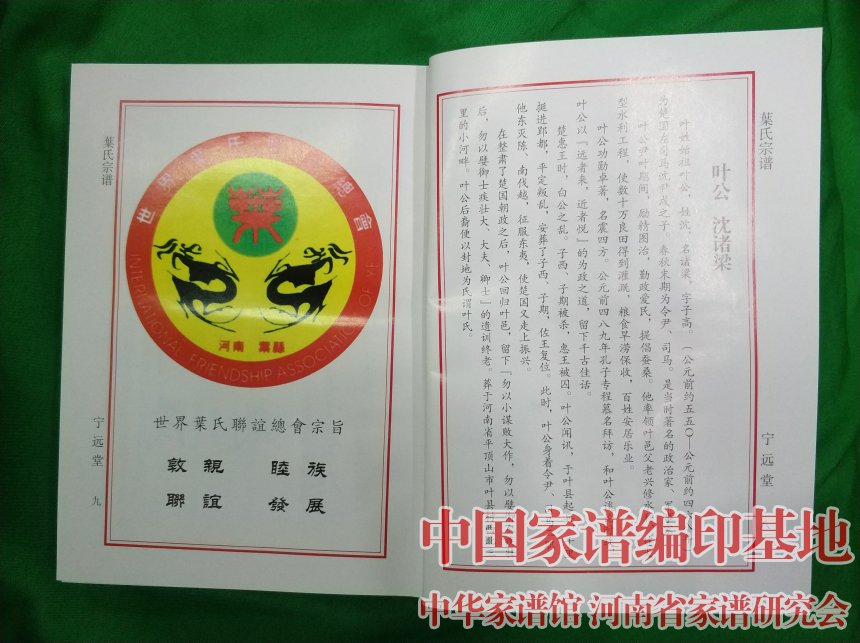 葉氏宗谱
世界葉氏聯誼總會
葉
INTERNATIONAL FRIENDSHIP ASSOCIATION OF YE
河南 葉縣
世界葉氏聯誼總會宗旨
敦親 睦族
聯誼 發展
宁远堂 九
葉氏宗谱
宁远堂
叶公 沈诸梁
叶姓始祖叶公，姓沈，名诸梁，字子高。（公元前约五五〇—公元前约四
为楚国左司马沈尹戍之子。春秋末期为令尹、司马。是当时著名的政治家、军
叶公尹叶期间，励精图治，勤政爱民，提倡蚕桑。他率领叶邑父老兴修水
型水利工程，使数十万良田得到灌溉，粮食旱涝保收，百姓安居乐业。
叶公功勋卓著，名震四方。公元前四八九年孔子专程慕名拜访，和叶公
叶公以『远者来，近者悦』的为政之道，留下千古佳话。
楚惠王时，白公之乱。子西、子期被杀，惠王被囚。叶公闻讯，于叶县起
挺进郢都，平定叛乱，安葬了子西、子期，佐王复位。此时，叶公身着令尹、
他东灭陈、南伐越，征服东夷，使楚国又走上振兴。
在整肃了楚国朝政之后，叶公回归叶邑，留下『勿以小谋败大作，勿以嬖
后，勿以嬖御士疾壮大、大夫、卿士』的遗训终老。葬于河南省平顶山市叶县
里的小河畔。叶公后裔便以封地为氏谓叶氏。
中国家谱编印基地
中华家谱馆 河南省家谱研究会